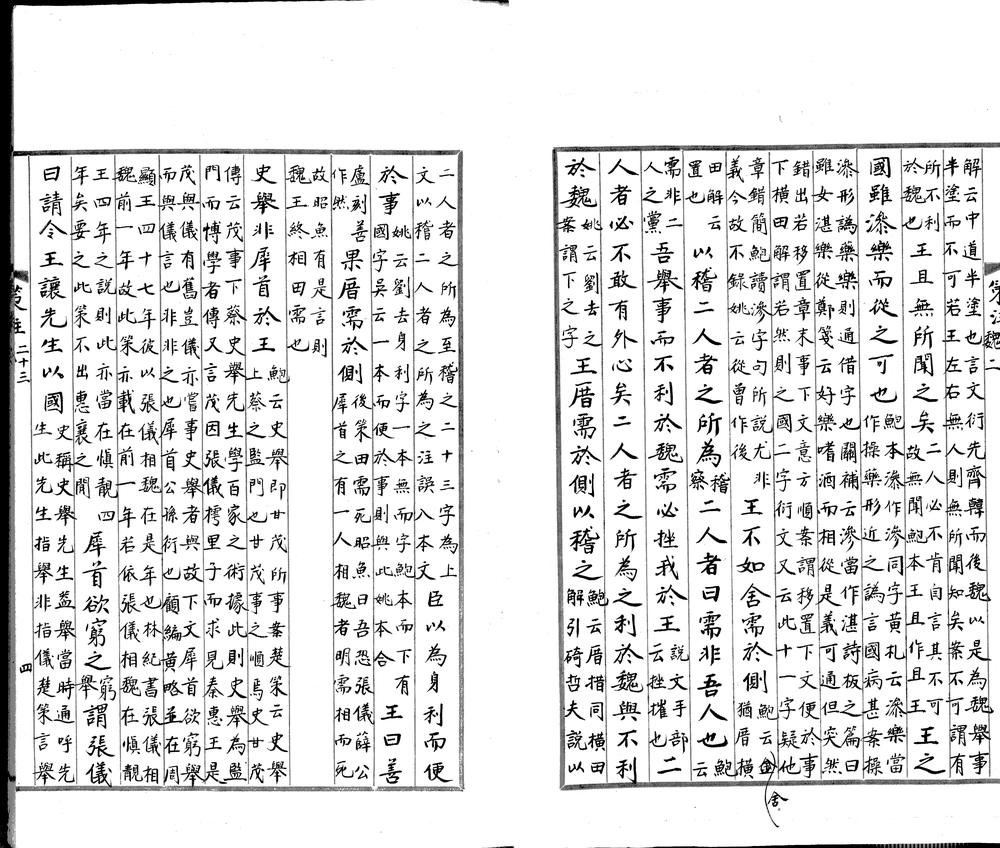 策注魏二
解云中道半塗也言文衍先齊韓而後魏以是為魏舉事
半塗而不可若王左右無人則無所聞知矣案不可謂有
所不利於魏也王且無所聞之矣二人必不肯自言其不可故無聞鮑本王且作且王王之
國雖滲樂而從之可也鮑本滲作滲同字黃札云滲樂當作操藥形近之譌言國病甚案操
滲形譌藥樂則通借字也關補云滲當作湛詩板之篇曰
雖女湛樂從鄭箋云好樂嗜酒而相從是義可通但突然
錯出若移置章末事下文意方順案謂移置下文便於事
下橫田解謂若然則之國二字衍文又云此十一字疑他
章錯簡鮑讀滲字句所說尤非義今故不錄姚云從曾作後王不如舍需於側鮑云舍猶厝橫
田解云置也以稽二人者之所為稽察二人者曰需非吾人也鮑云
需非二人之黨吾舉事而不利於魏需必挫我於王說文手部云挫摧也二
人者必不敢有外心矣二人者之所為之利於魏與不利
於魏姚云劉去之案謂下之字王厝需於側以稽之鮑云厝措同橫田解引碕哲夫說以
舍
二人者之所為至稽之二十三字為上文以稽二人者之所為之注誤入本文臣以為身利而便
於事姚云劉去身利字一本無而字鮑本而下有國字吳云一本而便於事則與此姚本合王曰善
盧刻善作然果厝需於側後策田需死昭魚曰吾恐張儀薛公犀首之有一人相魏者明需相而死
故昭魚有是言則魏王終相田需也
史舉非犀首於王鮑云史舉即甘茂所事案楚策云史舉上蔡之監門也甘茂事之順焉史甘茂
傳云茂事下蔡史舉先生學百家之術據此則史舉為監
門而博學者傳又言茂因張儀樗里子而求見秦惠王是
茂與儀有舊豈儀亦嘗事史舉者與故下文犀首欲窮舉
而與儀言也非非之也犀首公孫衍也顧編黃略並在周
顯王四十七年後以張儀相魏在是年也林紀書張儀相
魏前一年故此策亦載在前一年若依張儀相魏在慎靚
王四年之說則此亦當在慎靚四年矣要之此策不出惠襄之閒犀首欲窮之窮舉謂張儀
曰請令王讓先生以國史稱史舉先生蓋舉當時通呼先生此先生指舉非指儀楚策言舉
策注二十三
四